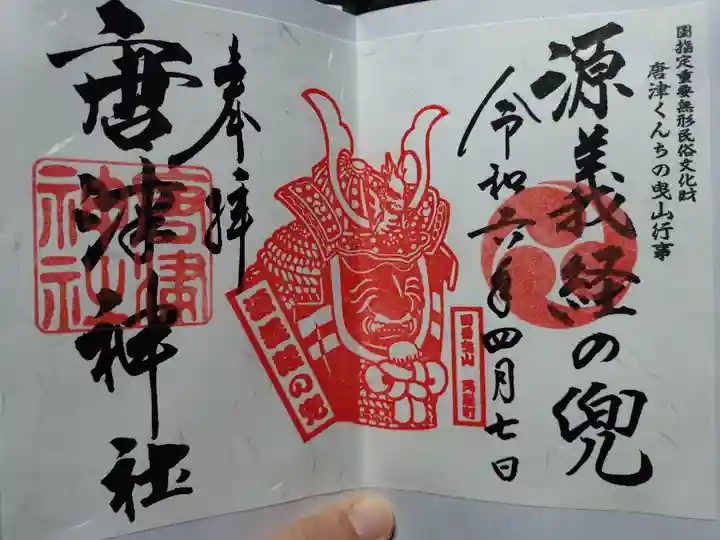 国指定重要無形民俗文化財
唐津くんちの曳山行事
源義経の兜
令和六年四月七日
源義経の兜
奉拝
唐津神社
唐津神社